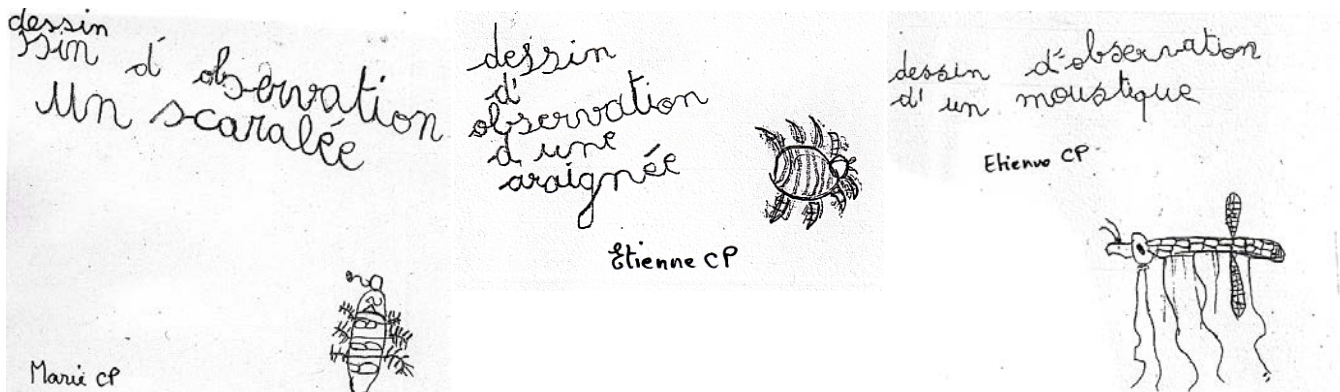 dessin
ssin d'observation
un scaralée
Marie CP
dessin
d'
observation
d'une
araignée
Etienne CP
dessin d'observation
d'un moustique
Etienne CP